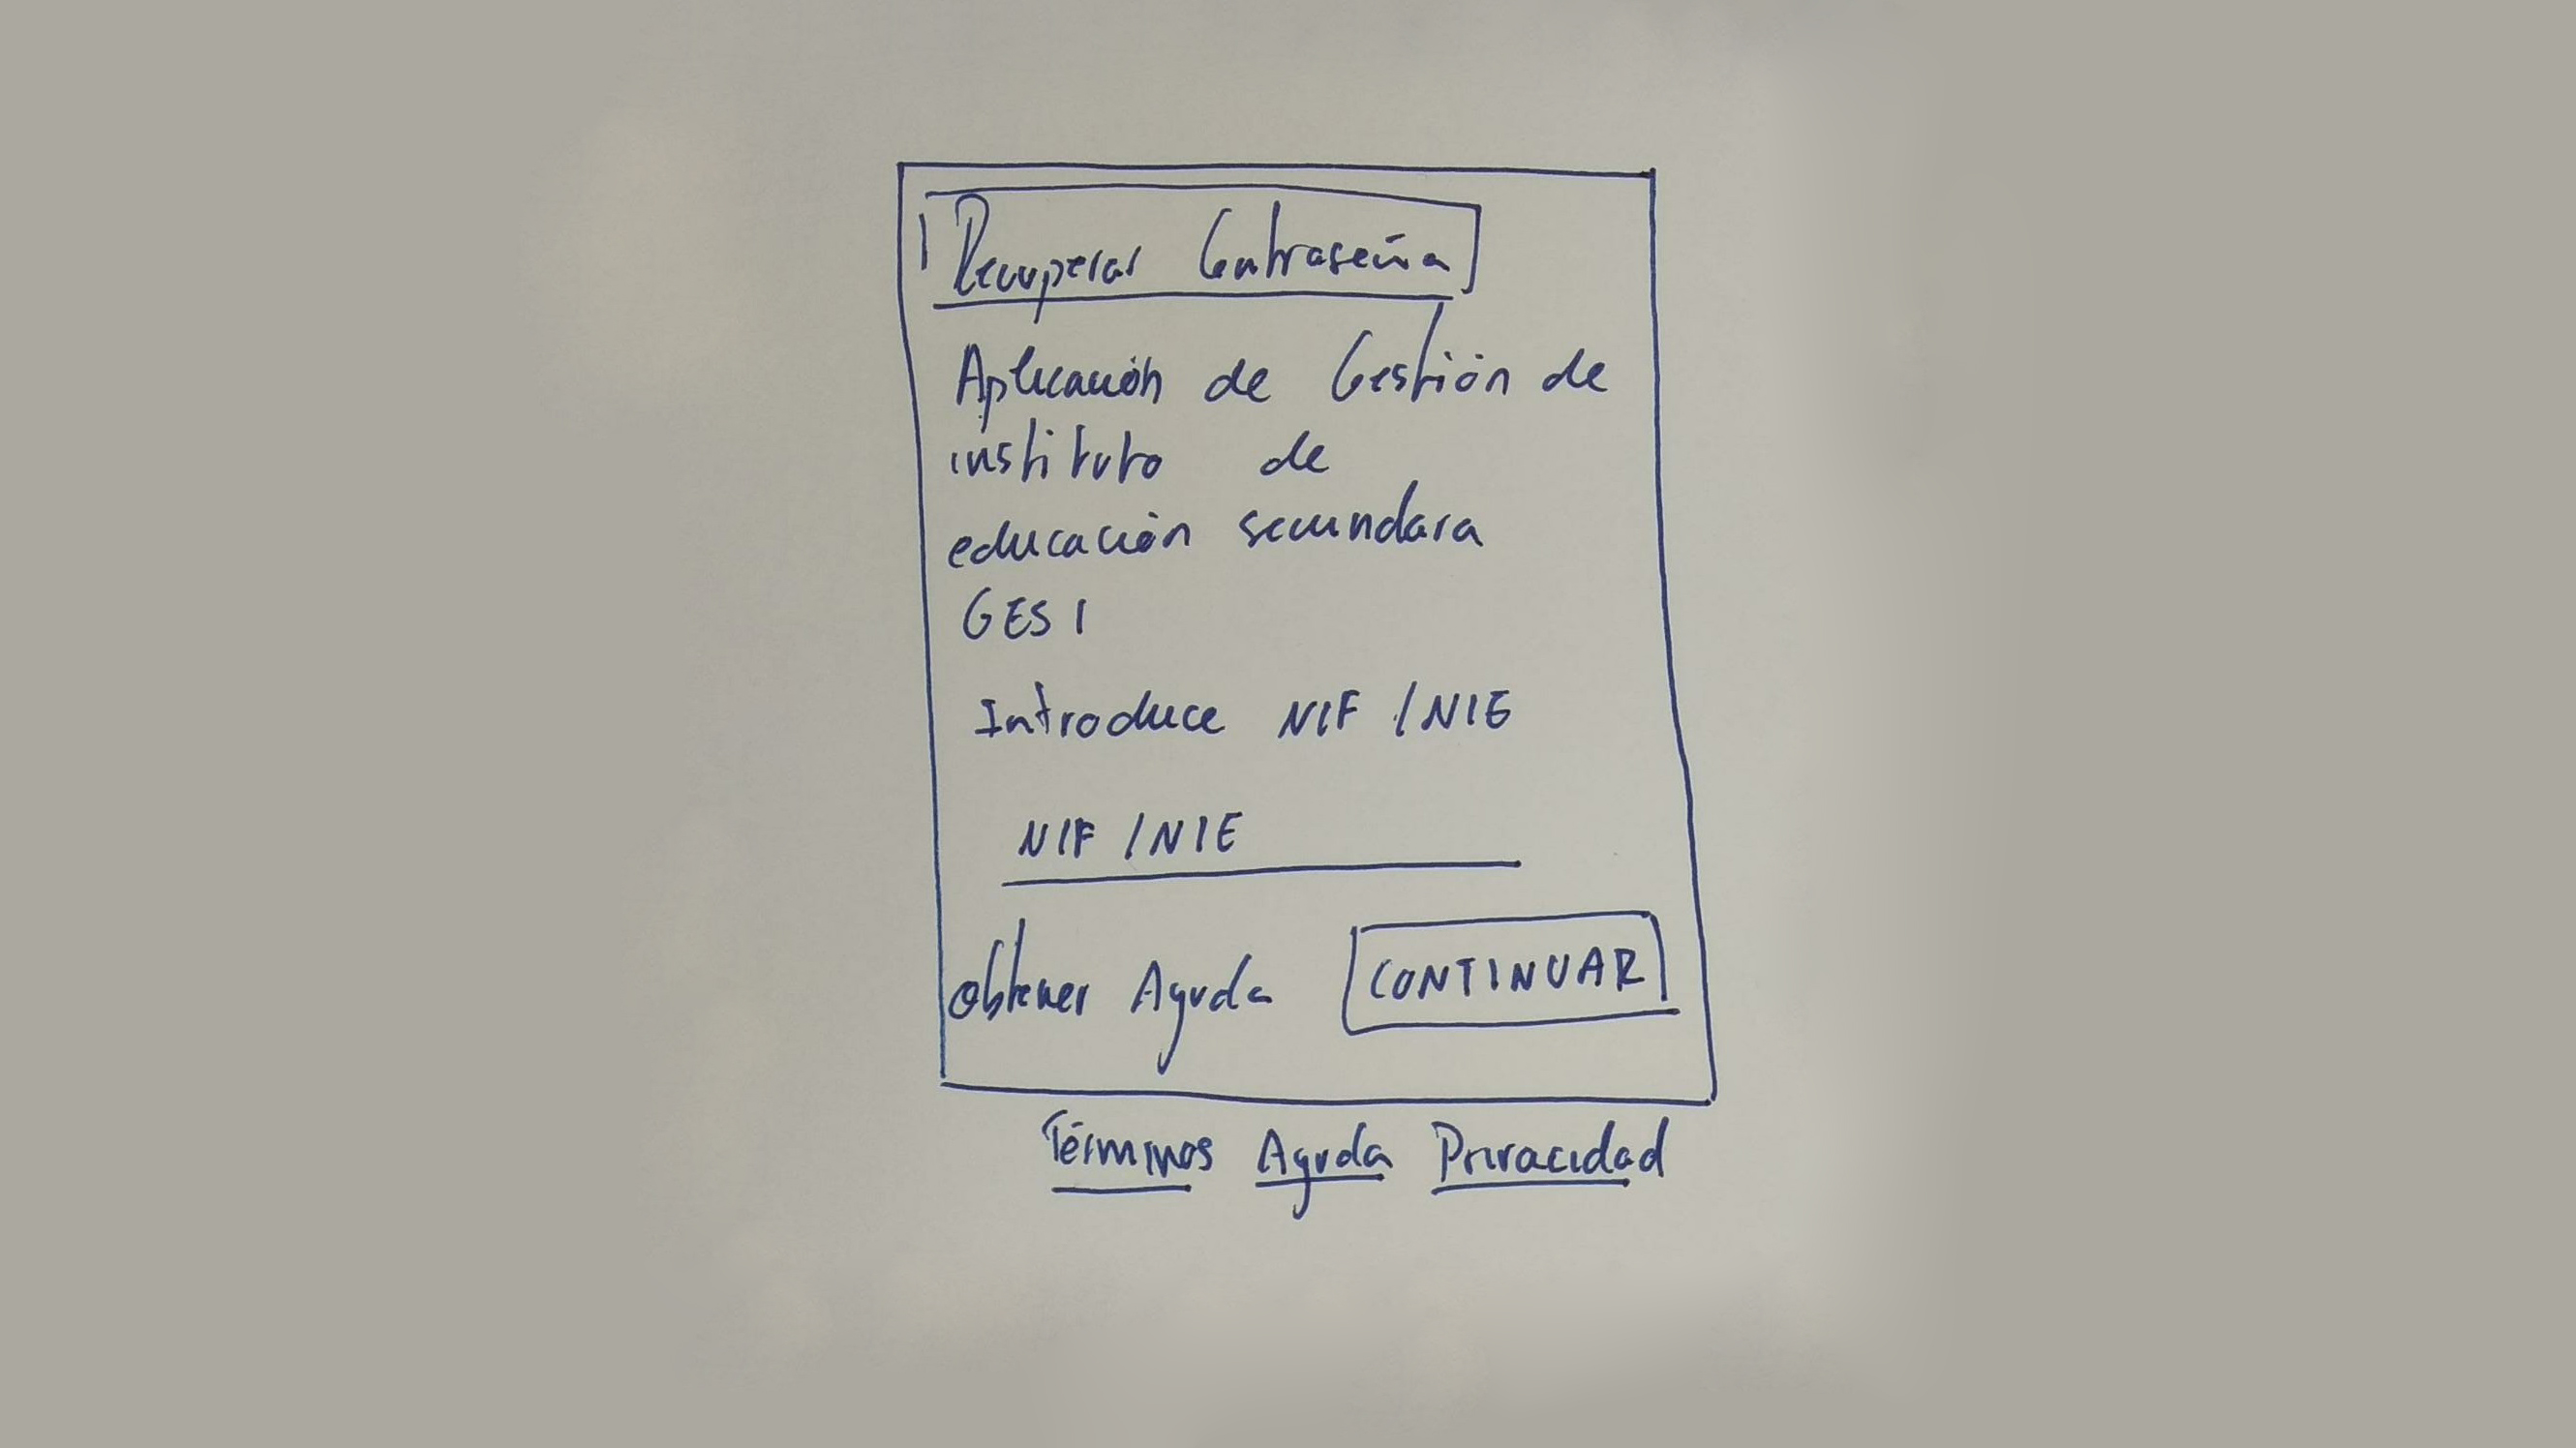 Recuperar Contraseña
Aplicación de Gestión de
instituto de
educación secundara
GESI
Introduce NIF / NIE
NIF / NIE
Obtener Ayuda CONTINUAR
Términos Ayuda Privacidad